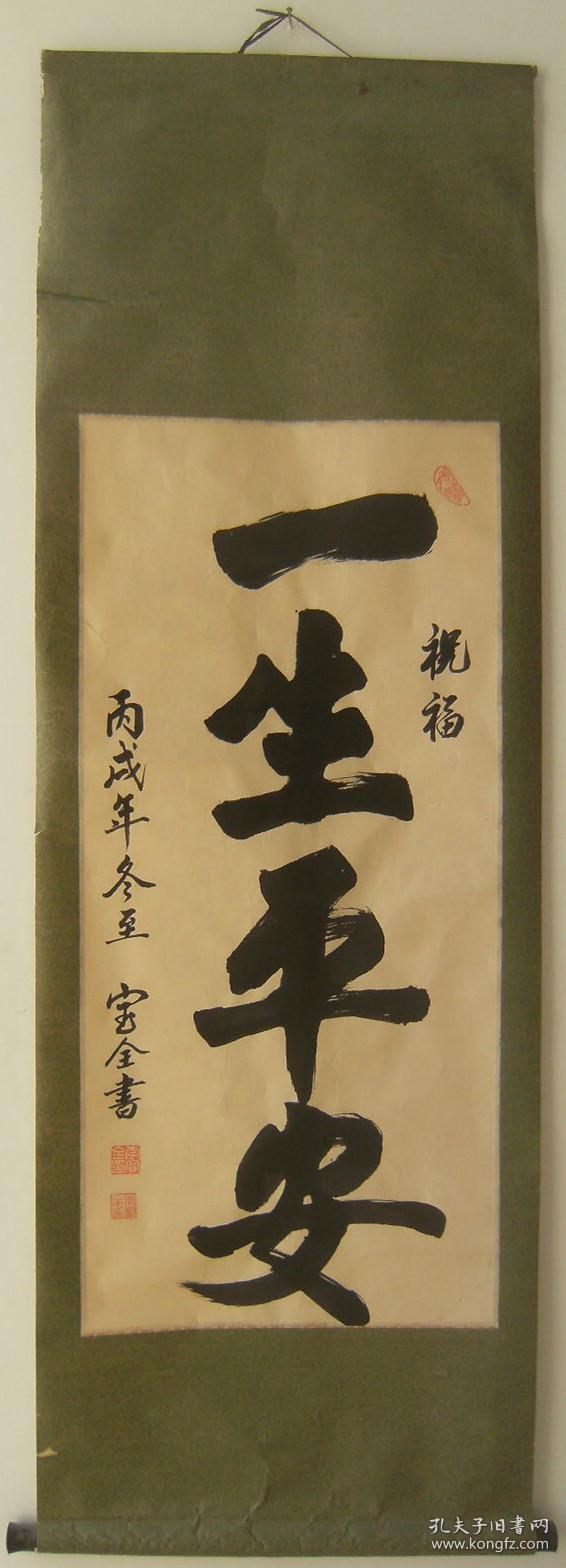 祝福
一生平安
丙戌年冬至 宝全書
孔夫子旧書网
www.kongfz.com